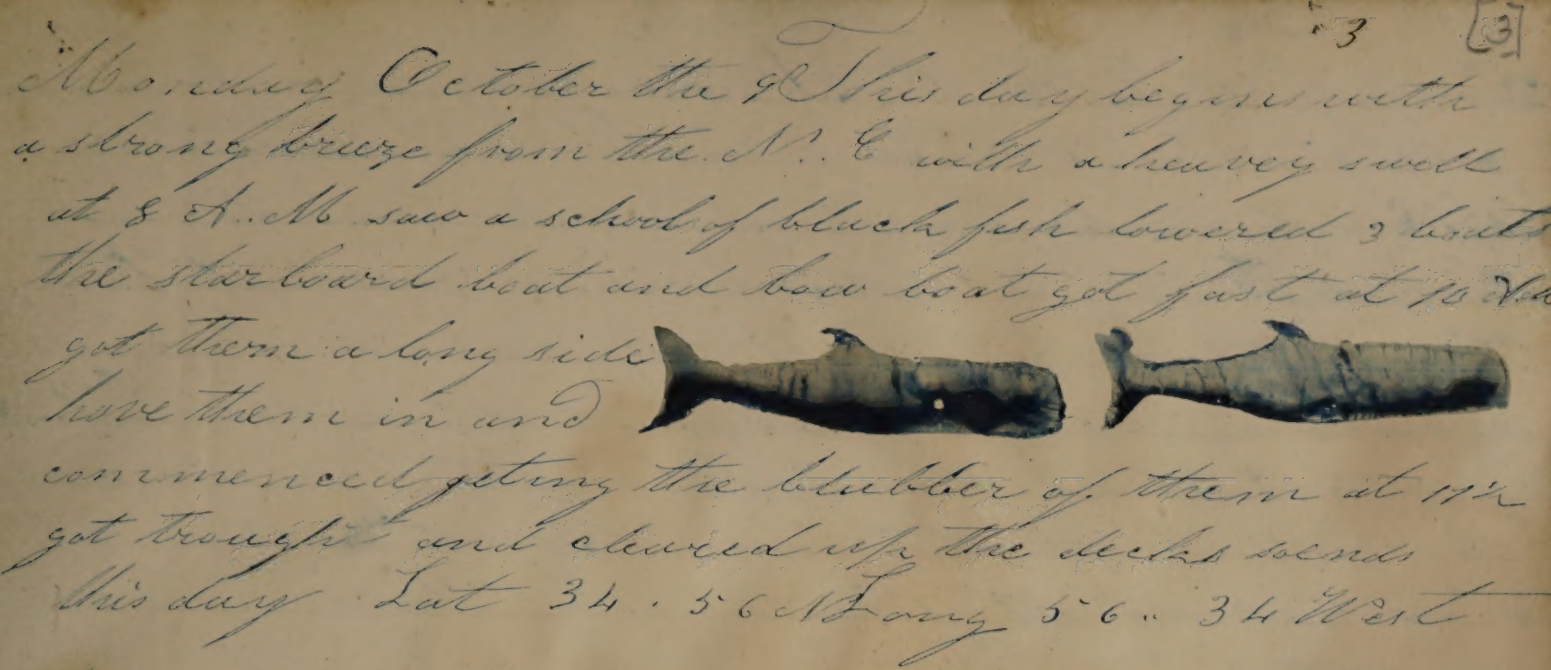 3 [3]
Monday October the 9 This day begins with
a strong breeze from the N.. E with a heavey swell
at 8 A.. M saw a school of black fish lowered 3 boats
the starboard boat and bow boat got fast at 10
got them a long side
hove them in and
commenced geting the blubber of them at 11½
got trough and cleared up the decks soends
this day Lat 34 . 56 N Long 56 .. 34 West